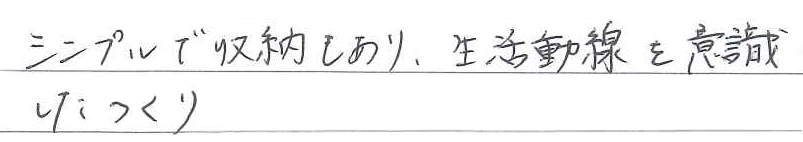 シンプルで収納もあり、生活動線を意識
したつくり